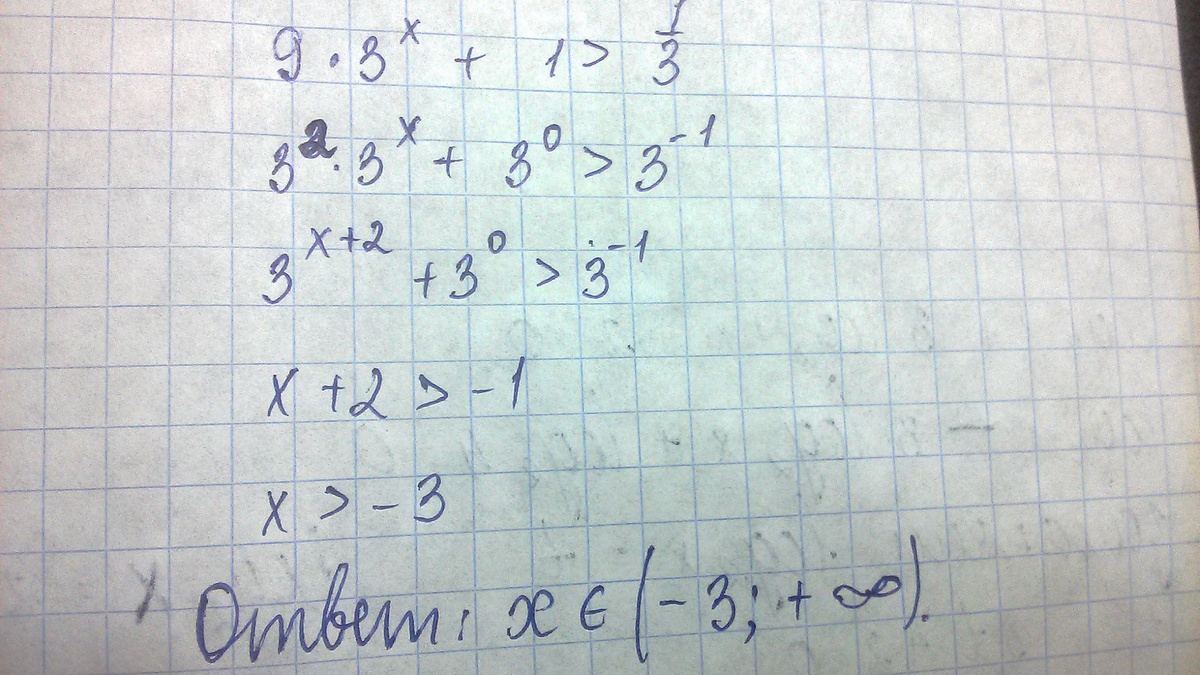 9 · 3^x + 1 > 1/3
3^2 · 3^x + 3^0 > 3^-1
3^x+2 + 3^0 > 3^-1
x + 2 > -1
x > -3
Ответ: x ∈ (-3; +∞).